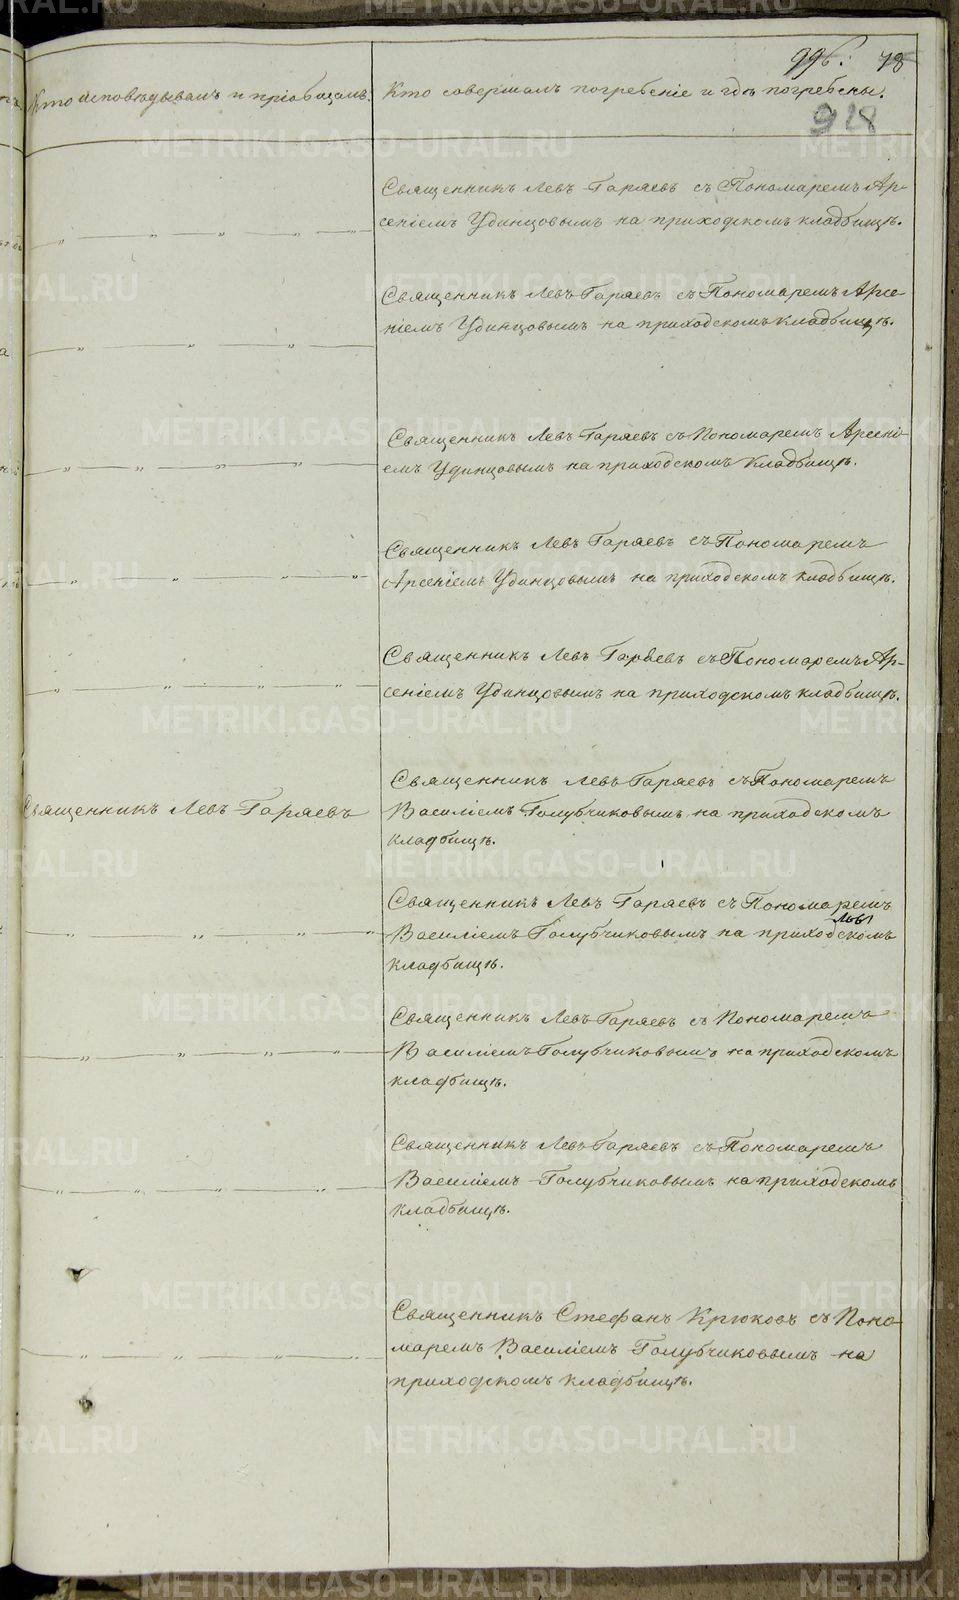 996. 78
Кто исповѣдывалъ и пріобщалъ.
Кто совершалъ погребеніе и гдѣ погребены.
928
Священникъ Левъ Гаряевъ съ Пономаремъ Ар-
сеніемъ Удинцовымъ на приходскомъ кладбищѣ.
Священникъ Левъ Гаряевъ съ Пономаремъ Арсе
ніемъ Удинцовымъ на приходскомъ кладбищѣ.
Священникъ Левъ Гаряевъ съ Пономаремъ Арсені-
емъ Удинцовымъ на приходскомъ кладбищѣ.
Священникъ Левъ Гаряевъ съ Пономаремъ
Арсеніемъ Удинцовымъ на приходскомъ кладбищѣ.
Священникъ Левъ Гаряевъ съ Пономаремъ Ар-
сеніемъ Удинцовымъ на приходскомъ кладбищѣ.
Священникъ Левъ Гаряевъ
Священникъ Левъ Гаряевъ съ Пономаремъ
Василіемъ Голубчиковымъ на приходскомъ
кладбищѣ.
Священникъ Левъ Гаряевъ съ Пономаремъ
Василіемъ Голубчиковымъ на приходскомъ
кладбищѣ.
Священникъ Левъ Гаряевъ съ Пономаремъ
Василіемъ Голубчиковымъ на приходскомъ
кладбищѣ.
Священникъ Левъ Гаряевъ съ Пономаремъ
Василіемъ Голубчиковымъ на приходскомъ
кладбищѣ.
Священникъ Стефанъ Крюковъ съ Поно-
маремъ Василіемъ Голубчиковымъ на
приходскомъ кладбищѣ.
METRIKI.GASO-URAL.RU